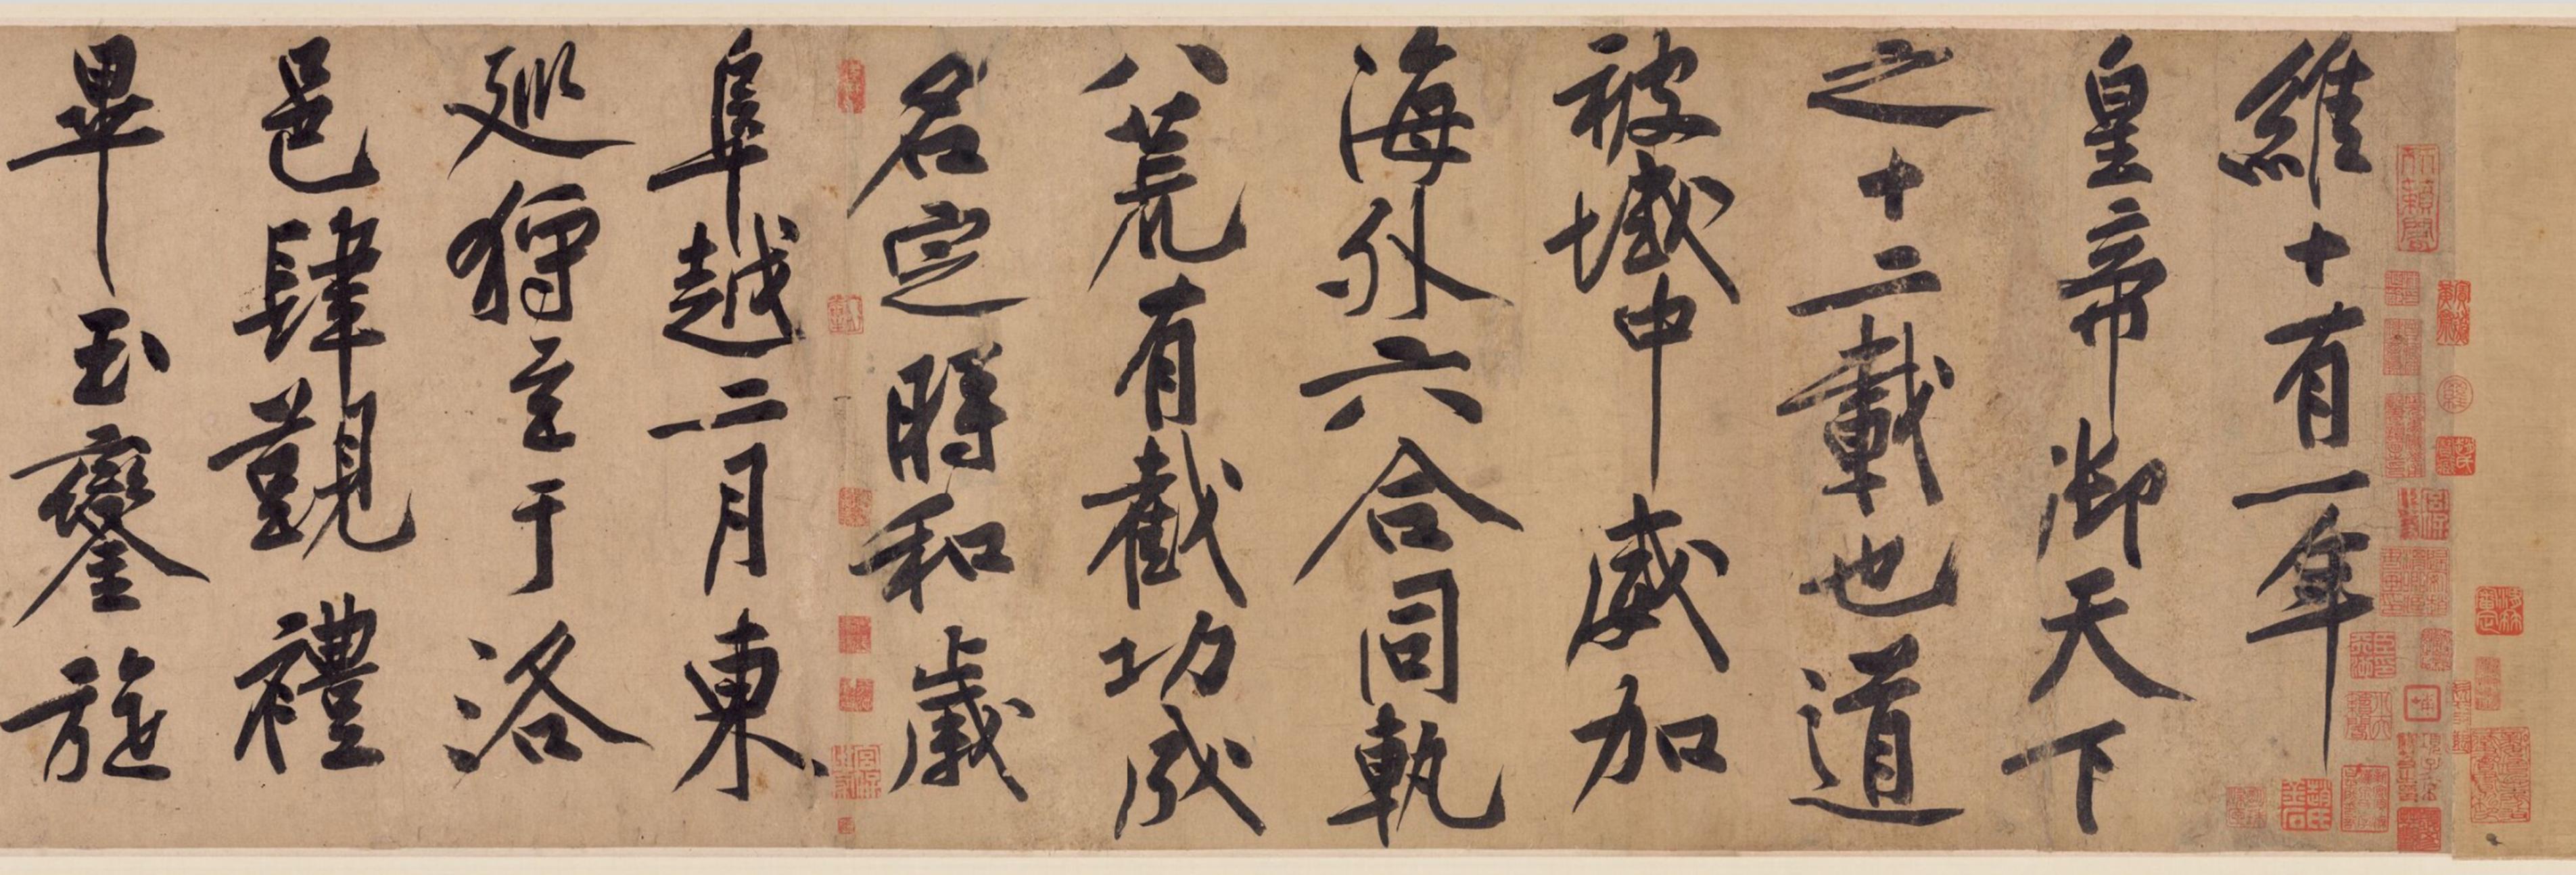 維十有一年
皇帝御天下
之十二載也道
被域中威加
海外六合同軌
八荒有截功成
名定時和歲
阜越二月東
巡狩至于洛
邑肆覲禮
畢玉鑾旋